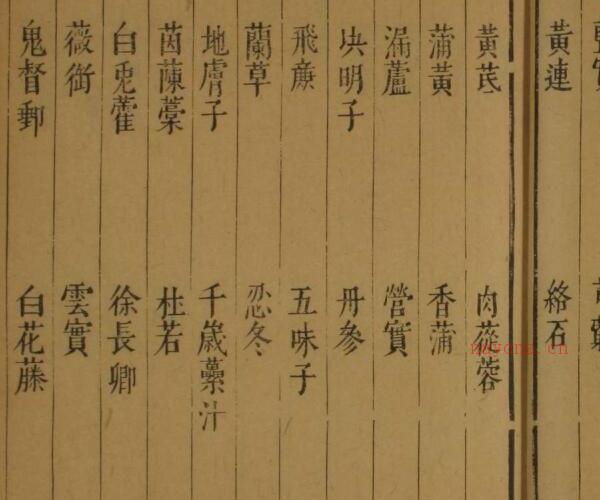 黃連 絡石
黃芪 肉蓯蓉
蒲黃 香蒲
漏蘆 營實
决明子 丹參
飛廉 五味子
蘭草 忍冬
地膚子 千歲虆汁
茵蔯蒿 杜若
白兎藿 徐長卿
薇銜 雲實
鬼督郵 白花藤